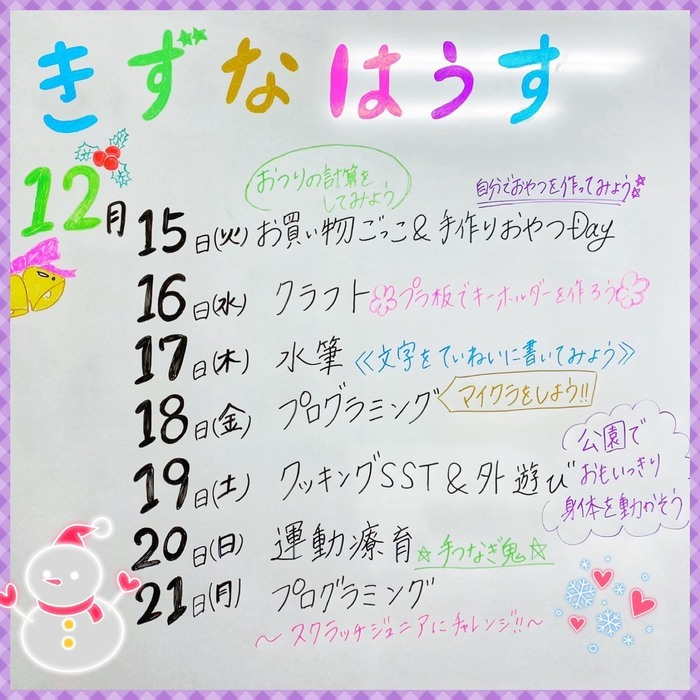 きずなはうす
12月
おつりの計算を
してみよう
自分でおやつを作ってみよう
15日(火) お買い物ごっこ&手作りおやつDay
16日(水) クラフト プラ板でキーホルダーを作ろう
17日(木) 水筆 《文字をていねいに書いてみよう》
18日(金) プログラミング マイクラをしよう!!
19日(土) クッキングSST&外遊び
公園で
おもいっきり
身体を動かそう
20日(日) 運動療育 ☆手つなぎ鬼☆
21日(月) プログラミング
~スクラッチジュニアにチャレンジ!!~